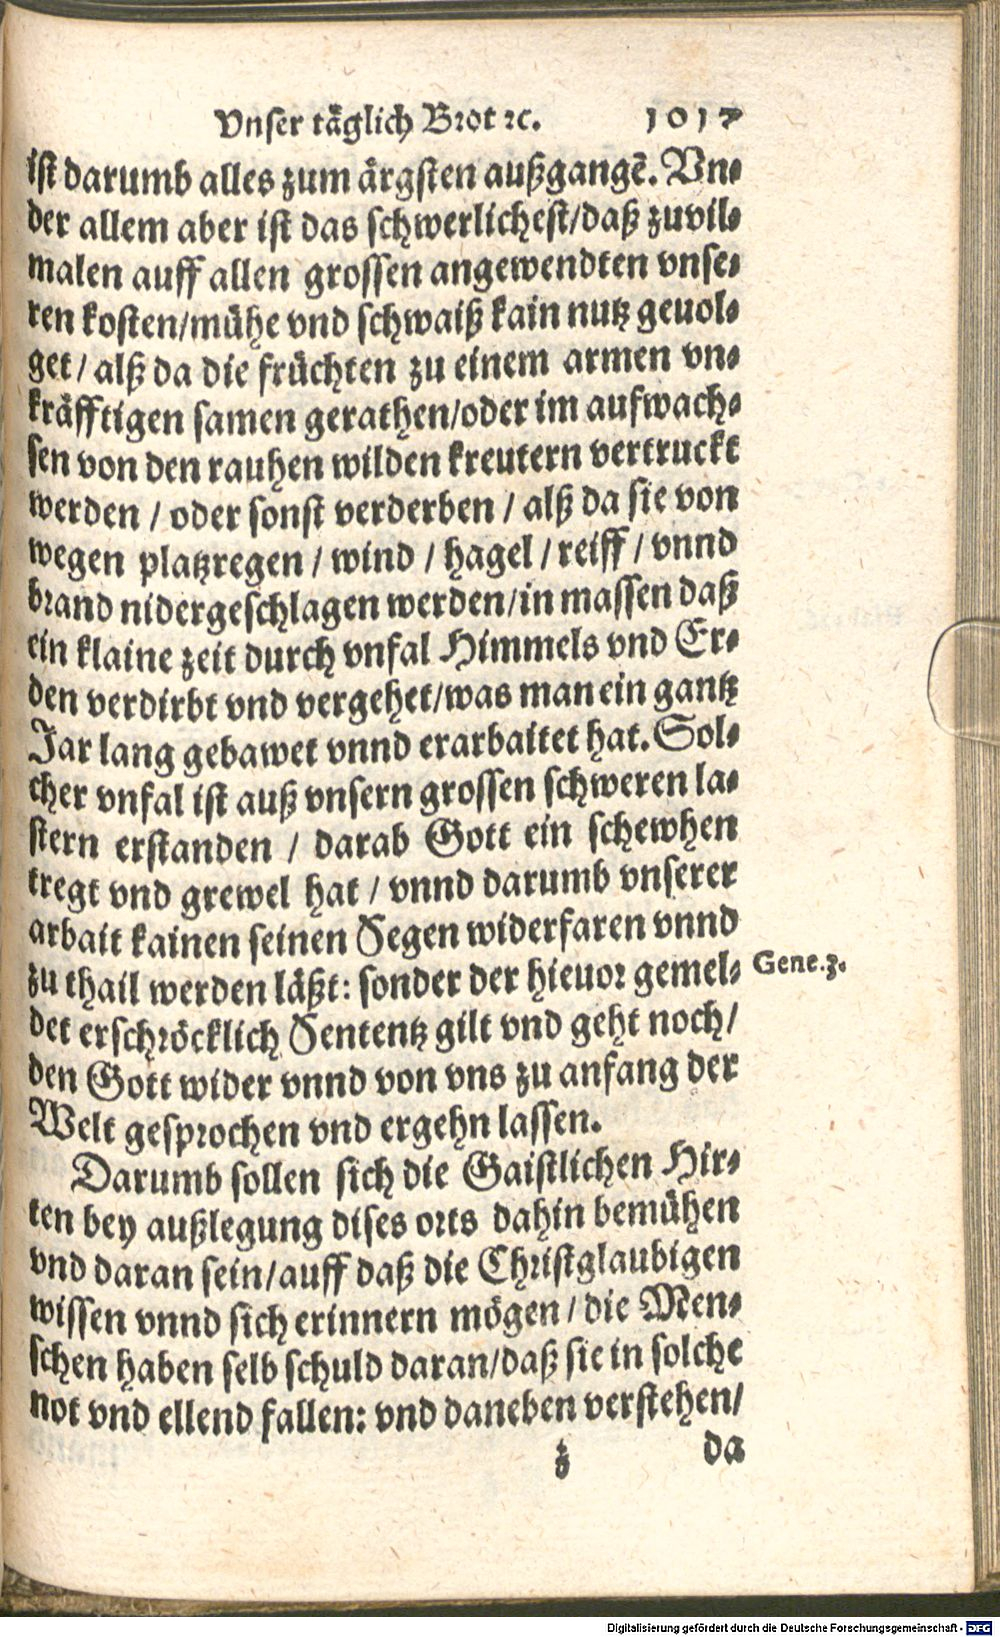 Vnser täglich Brot ꝛc. 1017
ist darumb alles zum ärgsten außgangẽ. Vn-
der allem aber ist das schwerlichest/daß zuvil-
malen auff allen grossen angewendten vnse-
ren kosten/mühe vnd schwaiß kain nutz geuol-
get / alß da die früchten zu einem armen vn-
kräfftigen samen gerathen/oder im aufwach-
sen von den rauhen wilden kreutern vertruckt
werden / oder sonst verderben / alß da sie von
wegen platzregen / wind / hagel / reiff / vnnd
brand nidergeschlagen werden/in massen daß
ein klaine zeit durch vnfal Himmels vnd Er-
den verdirbt vnd vergehet/was man ein gantz
Jar lang gebawet vnnd erarbaitet hat. Sol-
cher vnfal ist auß vnsern grossen schweren la-
stern erstanden / darab Gott ein schewhen
tregt vnd grewel hat / vnnd darumb vnserer
arbait kainen seinen Segen widerfaren vnnd
zu thail werden läßt: sonder der hieuor gemel-
Gene.3.
det erschröcklich Sententz gilt vnd geht noch/
den Gott wider vnnd von vns zu anfang der
Welt gesprochen vnd ergehn lassen.
Darumb sollen sich die Gaistlichen Hir-
ten bey außlegung dises orts dahin bemühen
vnd daran sein/auff daß die Christglaubigen
wissen vnnd sich erinnern mögen / die Men-
schen haben selb schuld daran/daß sie in solche
not vnd ellend fallen: vnd daneben verstehen/
da
Digitalisierung gefördert durch die Deutsche Forschungsgemeinschaft - DFG